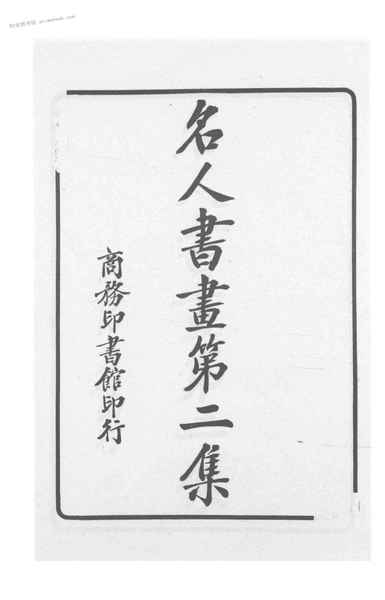 名人書畫第二集
商務印書館印行